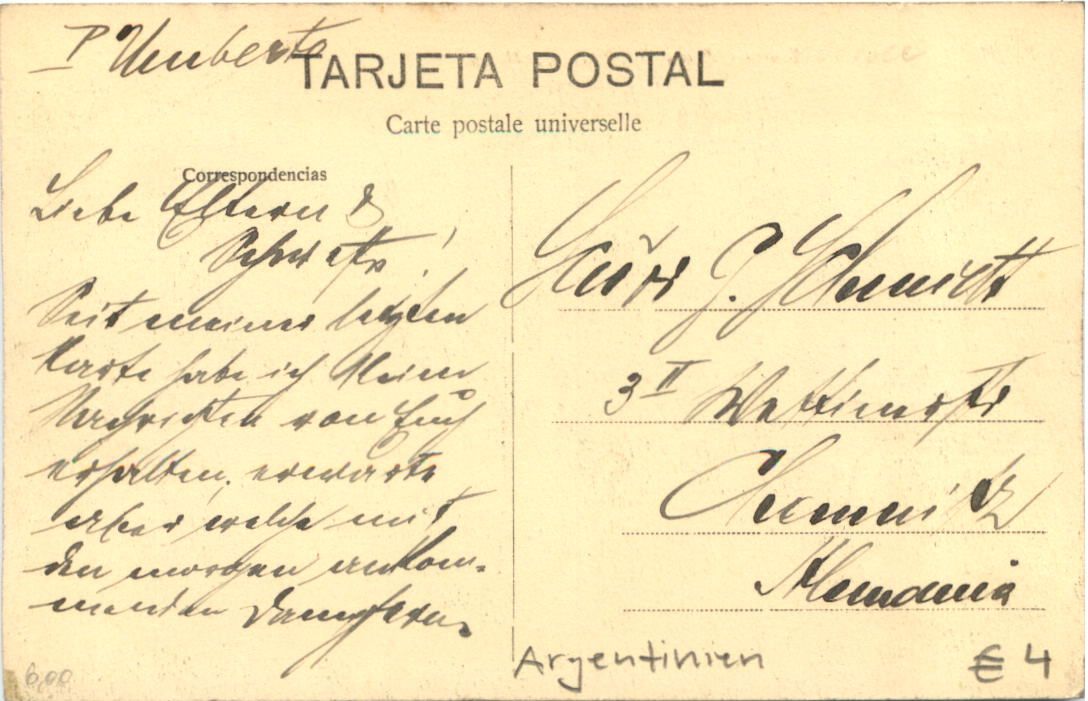 P Umberto
TARJETA POSTAL
Carte postale universelle
Correspondencias
Liebe Eltern &
Schwester!
Seit meiner letzten
Karte habe ich keine
Nachrichten von Euch
erhalten, erwarte
aber welche mit
den morgen ankom-
menden Dampfern.
G. Schmidt
3 II
Chemnitz
Alemania
Argentinien
€ 4
6,00